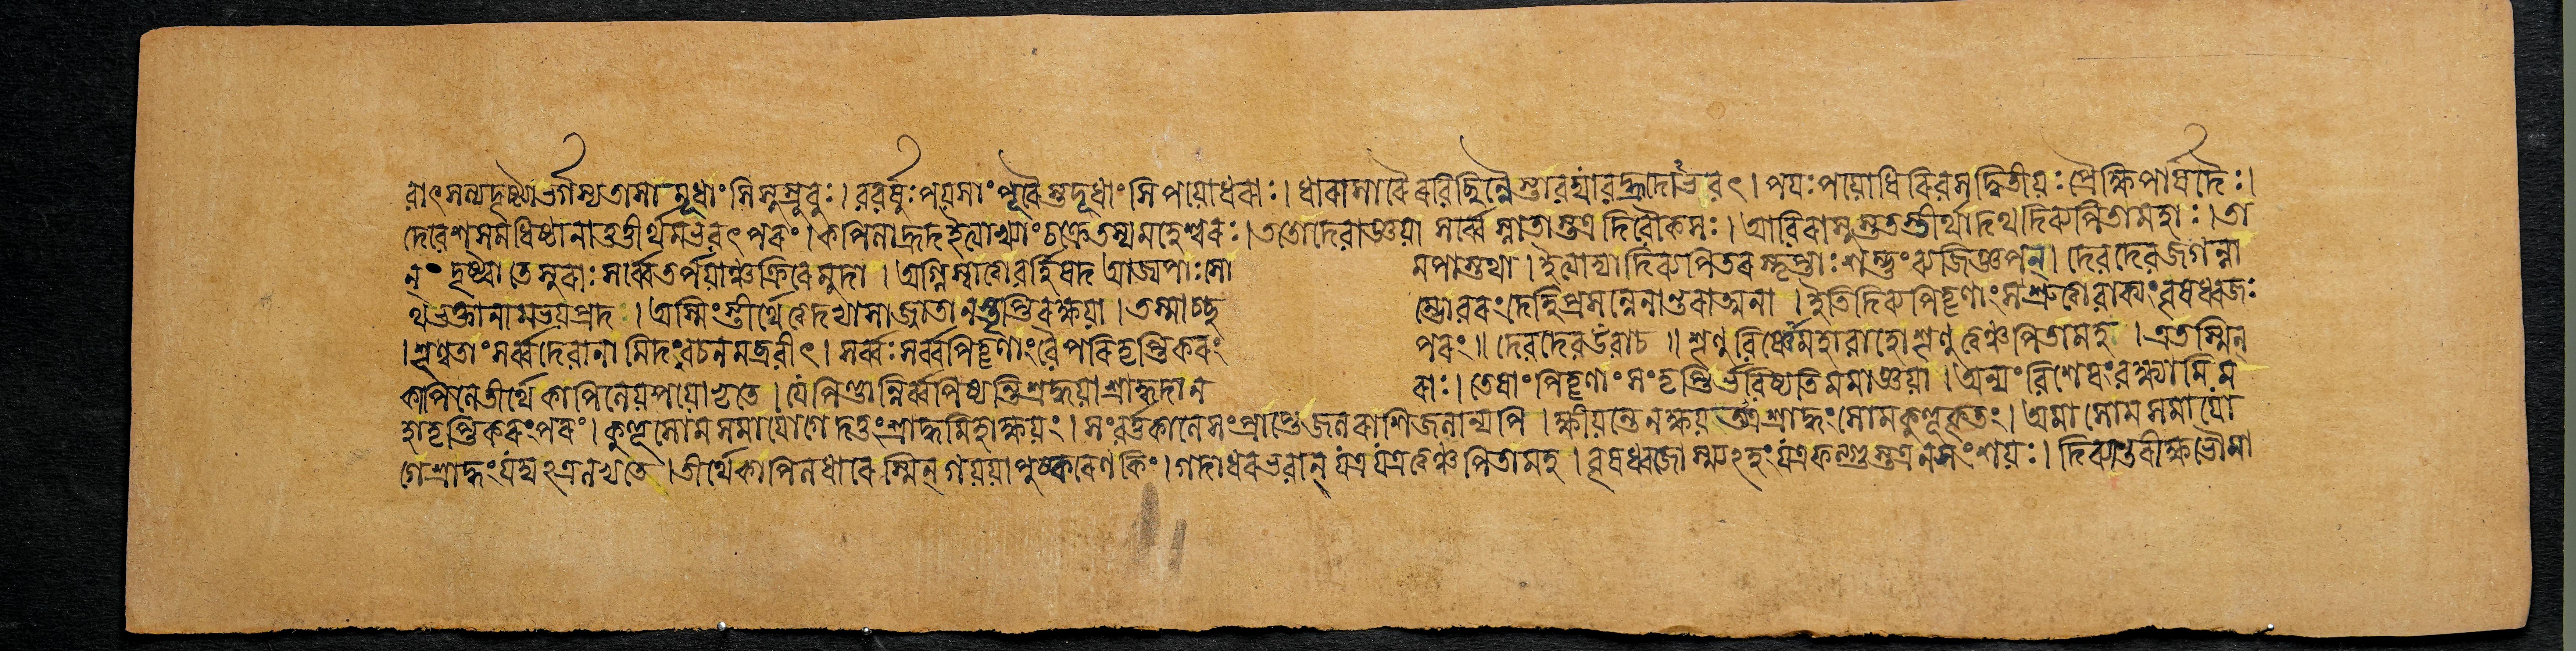 বাৎসল্যদৃষ্ট্যৈর্ভর্গস্য তাসামূধাংসি সুস্রুবুঃ । ববর্ষুঃ পয়সাং পূরৈস্তদূধাংসি পয়োধরাঃ । ধারাসারৈরবিচ্ছিন্নৈস্তাবদ্যাবদ্ধ্রদোভবৎ । পয়ঃ পয়োধিরিব স দ্বিতীয়ঃ প্রৈক্ষি পার্ষদৈঃ ।
দেবেশসমধিষ্ঠানাত্তত্তীর্থমভবৎ পরং । কপিলাহ্রদ ইত্যাখ্যাং চক্রে তস্য মহেশ্বরঃ । ততো দেবাজ্ঞয়া সর্ব্বে স্নাতাস্তত্র দিবৌকসঃ । আবিরাসুস্ততস্তীর্থাদথ দিব্যপিতামহাঃ । তা
ন্ দৃষ্ট্বা তে সুরাঃ সর্ব্বে তর্পয়াঞ্চক্রিরে মুদা । অগ্নিষ্বাত্তা বর্হিষদ আজ্যপাঃ সো মপাস্তথা । ইত্যাদ্যা দিব্যপিতরস্তৃপ্তাঃ শম্ভুং ব্যজিজ্ঞপন্ । দেবদেব জগন্না
থ ভক্তানামভয়প্রদ । অস্মিংস্তীর্থে ত্বদভ্যাসাজ্জাতা নস্তৃপ্তিরক্ষয়া । তস্মাচ্ছ ম্ভো বরং দেহি প্রসন্নেনান্তরাত্মনা । ইতি দিব্যপিতৄণাং স শ্রুত্বা বাক্যং বৃষধ্বজঃ
। শৃণ্বতাং সর্ব্বদেবানামিদং বচনমব্রবীৎ । সর্ব্বঃ সর্ব্বপিতৄণাং বৈ পরিতৃপ্তিকরং পরং ॥ দেবদেব উবাচ ॥ শৃণু বিষ্ণো মহাবাহো শৃণু ত্বঞ্চ পিতামহ । এতস্মিন্
কাপিলে তীর্থে কাপিলেয়পয়োভৃতে । যে পিণ্ডান্নির্ব্বপিষ্যন্তি শ্রদ্ধয়া শ্রাদ্ধদান রাঃ । তেষাং পিতৄণাং সংতৃপ্তির্ভবিষ্যতি মমাজ্ঞয়া । অন্যং বিশেষং বক্ষ্যামি ম
হাতৃপ্তিকরং পরং । কুহূসোমসমাযোগে দত্তং শ্রাদ্ধমিহাক্ষয়ং । সংবর্ত্তকালে সংপ্রাপ্তে জলরাশিজলান্যপি । ক্ষীয়ন্তে ন ক্ষয়ত্যত্র শ্রাদ্ধং সোমকুহূকৃতং । অমাসোমসমাযো
গে শ্রাদ্ধং যদ্যত্র লভ্যতে । তীর্থে কাপিলধারেস্মিন্ গয়য়া পুষ্করেণ কিং । গদাধর ভবান্ যত্র যত্র ত্বঞ্চ পিতামহ । বৃষধ্বজোস্ম্যহং যত্র ফল্গুস্তত্র ন সংশয়ঃ । দিব্যান্তরীক্ষভৌমা